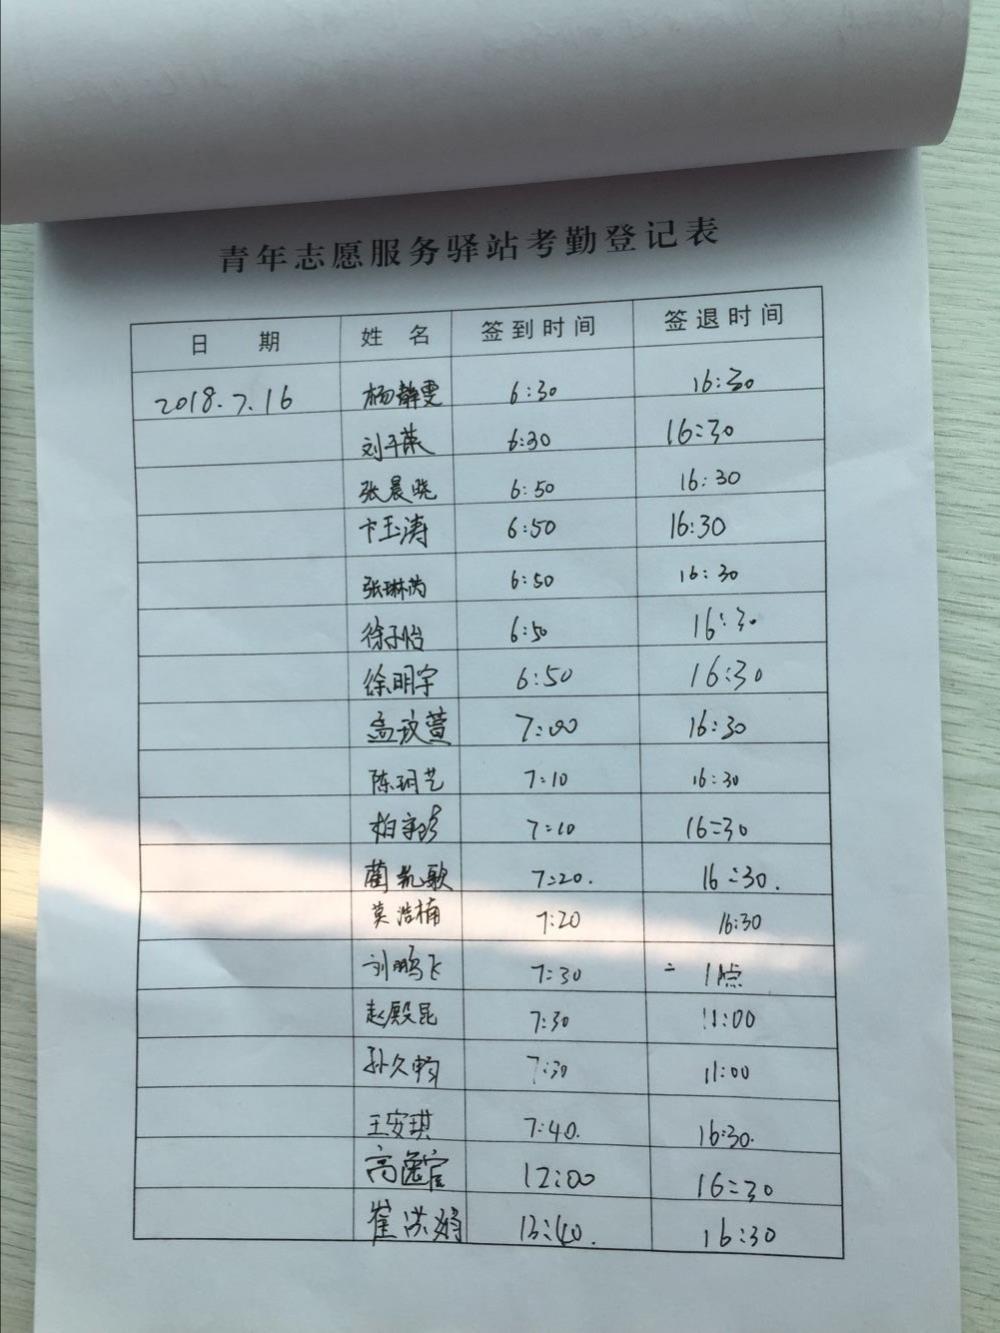 青年志愿服务驿站考勤登记表
日 期 姓 名 签到时间 签退时间
2018.7.16 杨静雯 6:30 16:30
刘子菜 6:30 16:30
张晨晓 6:50 16:30
卞玉涛 6:50 16:30
张琳芮 6:50 16:30
徐子怡 6:50 16:30
徐明宇 6:50 16:30
孟玟萱 7:00 16:30
陈玥艺 7:10 16:30
柏 7:10 16:30
蔺凯歌 7:20. 16:30.
莫浩楠 7:20 16:30
刘鹏飞 7:30 11点
赵殿昆 7:30 11:00
孙久畅 7:30 11:00
王安琪 7:40. 16:30.
高 12:00 16:30
崔洪娟 13:40. 16:30